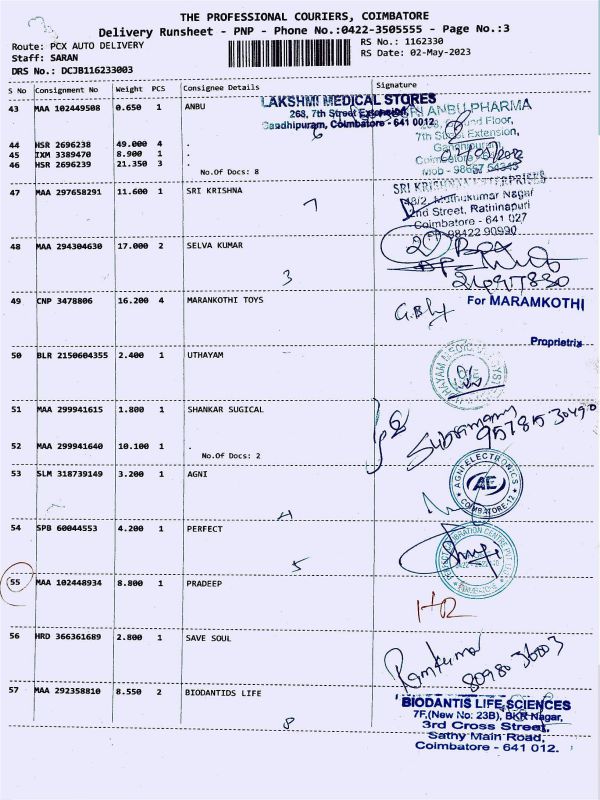 THE PROFESSIONAL COURIERS, COIMBATORE
Delivery Runsheet - PNP - Phone No.:0422-3505555 - Page No.:3
Route: PCX AUTO DELIVERY
RS No.: 1162330
Staff: SARAN
RS Date: 02-May-2023
DRS No.: DCJB116233003
S No Consignment No Weight PCS Consignee Details Signature
43 MAA 102449508 0.650 1 ANBU
LAKSHMI MEDICAL STORES
268, 7th Street Extension,
Gandhipuram, Coimbatore - 641 0012.
ANBU PHARMA
Floor,
7th Street Extension,
Gandhipuram,
6
44 HSR 2696238 49.000 4 .
45 IXM 3389470 8.900 1 .
46 HSR 2696239 21.350 3 .
No.Of Docs: 8
47 MAA 297658291 11.600 1 SRI KRISHNA
SRI KRISHNA ENTERPRISES
Muthukumar Nagar
2nd Street, Rathinapuri
Coimbatore - 641 027
98422 90990
7
48 MAA 294304630 17.000 2 SELVA KUMAR
2 Box
3
49 CNP 3478806 16.200 4 MARANKOTHI TOYS
For MARAMKOTHI
Proprietrix
50 BLR 2150604355 2.400 1 UTHAYAM
51 MAA 299941615 1.800 1 SHANKAR SUGICAL
Subramany
95781530490
52 MAA 299941640 10.100 1 .
No.Of Docs: 2
53 SLM 318739149 3.200 1 AGNI
AGNI ELECTRONICS
AE
COIMBATORE-12
4
54 SPB 60044553 4.200 1 PERFECT
5
55 MAA 102448934 8.800 1 PRADEEP
56 HRD 366361689 2.800 1 SAVE SOUL
Ramkumar
8098036003
57 MAA 292358810 8.550 2 BIODANTIDS LIFE
BIODANTIS LIFE SCIENCES
7F,(New No: 23B), BKR Nagar,
3rd Cross Street,
Sathy Main Road,
Coimbatore - 641 012.
8